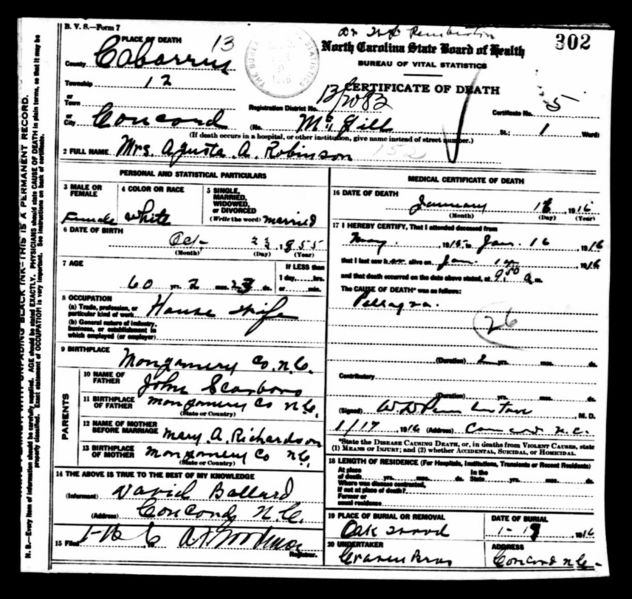 B. V. S.—Form 7
302
1 PLACE OF DEATH 13
North Carolina State Board of Health
BUREAU OF VITAL STATISTICS
County Cabarrus
CERTIFICATE OF DEATH
Township 12
or
Town
Registration District No. 13/2082 Certificate No. 5
or
City Concord (No. McGill St.; 1 Ward)
(If death occurs in a hospital, or other institution, give name instead of street number.)
2 FULL NAME Mrs. Agusta A. Robinson
PERSONAL AND STATISTICAL PARTICULARS
3 MALE OR FEMALE Female
4 COLOR OR RACE White
5 SINGLE, MARRIED, WIDOWED, OR DIVORCED (Write the word) married
6 DATE OF BIRTH
Oct 23 1855
(Month) (Day) (Year)
7 AGE
60 yrs. 2 mos. 23 ds.
If LESS than 1 day, hrs. or min.
8 OCCUPATION
(a) Trade, profession, or particular kind of work House Wife
(b) General nature of industry, business, or establishment in which employed (or employer)
9 BIRTHPLACE Montgomery Co N.C.
PARENTS
10 NAME OF FATHER John Scarboro
11 BIRTHPLACE OF FATHER Montgomery Co N.C.
(State or Country)
12 NAME OF MOTHER BEFORE MARRIAGE Mary A. Richardson
13 BIRTHPLACE OF MOTHER Montgomery Co N.C.
(State or Country)
14 THE ABOVE IS TRUE TO THE BEST OF MY KNOWLEDGE
(Informant) David Ballard
(Address) Concord N.C.
15 Filed 1-16 6
Registrar.
MEDICAL CERTIFICATE OF DEATH
16 DATE OF DEATH
January 16 1916
(Month) (Day) (Year)
17 I HEREBY CERTIFY, That I attended deceased from
May, 1915, to Jan. 16 1916
that I last saw her alive on Jan. 1916
and that death occurred on the date above stated, at 9.50 a m.
The CAUSE OF DEATH* was as follows:
Pellagra.
26
(Duration) 2 yrs. mos. ds.
Contributory
(Duration) yrs. mos. ds.
(Signed) W D Pemberton M. D.
1/17 1916 (Address) Concord N.C.
*State the DISEASE CAUSING DEATH, or, in deaths from VIOLENT CAUSES, state
(1) MEANS OF INJURY; and (2) whether ACCIDENTAL, SUICIDAL, OR HOMICIDAL
18 LENGTH OF RESIDENCE (For Hospitals, Institutions, Transients or Recent Residents)
At place of death yrs. mos. ds. In the State yrs. mos. ds.
Where was disease contracted,
if not at place of death?
Former or
usual residence
19 PLACE OF BURIAL OR REMOVAL Oak wood
DATE OF BURIAL 1-9 1916
20 UNDERTAKER Craven Bros
ADDRESS Concord N.C.